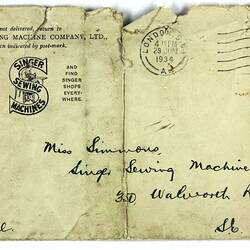 not delivered, return to
ING MACHINE COMPANY, LTD.,
indicated by post-mark.
SINGER
SEWING
MACHINES
AND
FIND
SINGER
SHOPS
EVERY-
WHERE.
LONDON
4 PM
1934
Miss Simmons,
Singer Sewing Machine
30 Walworth R